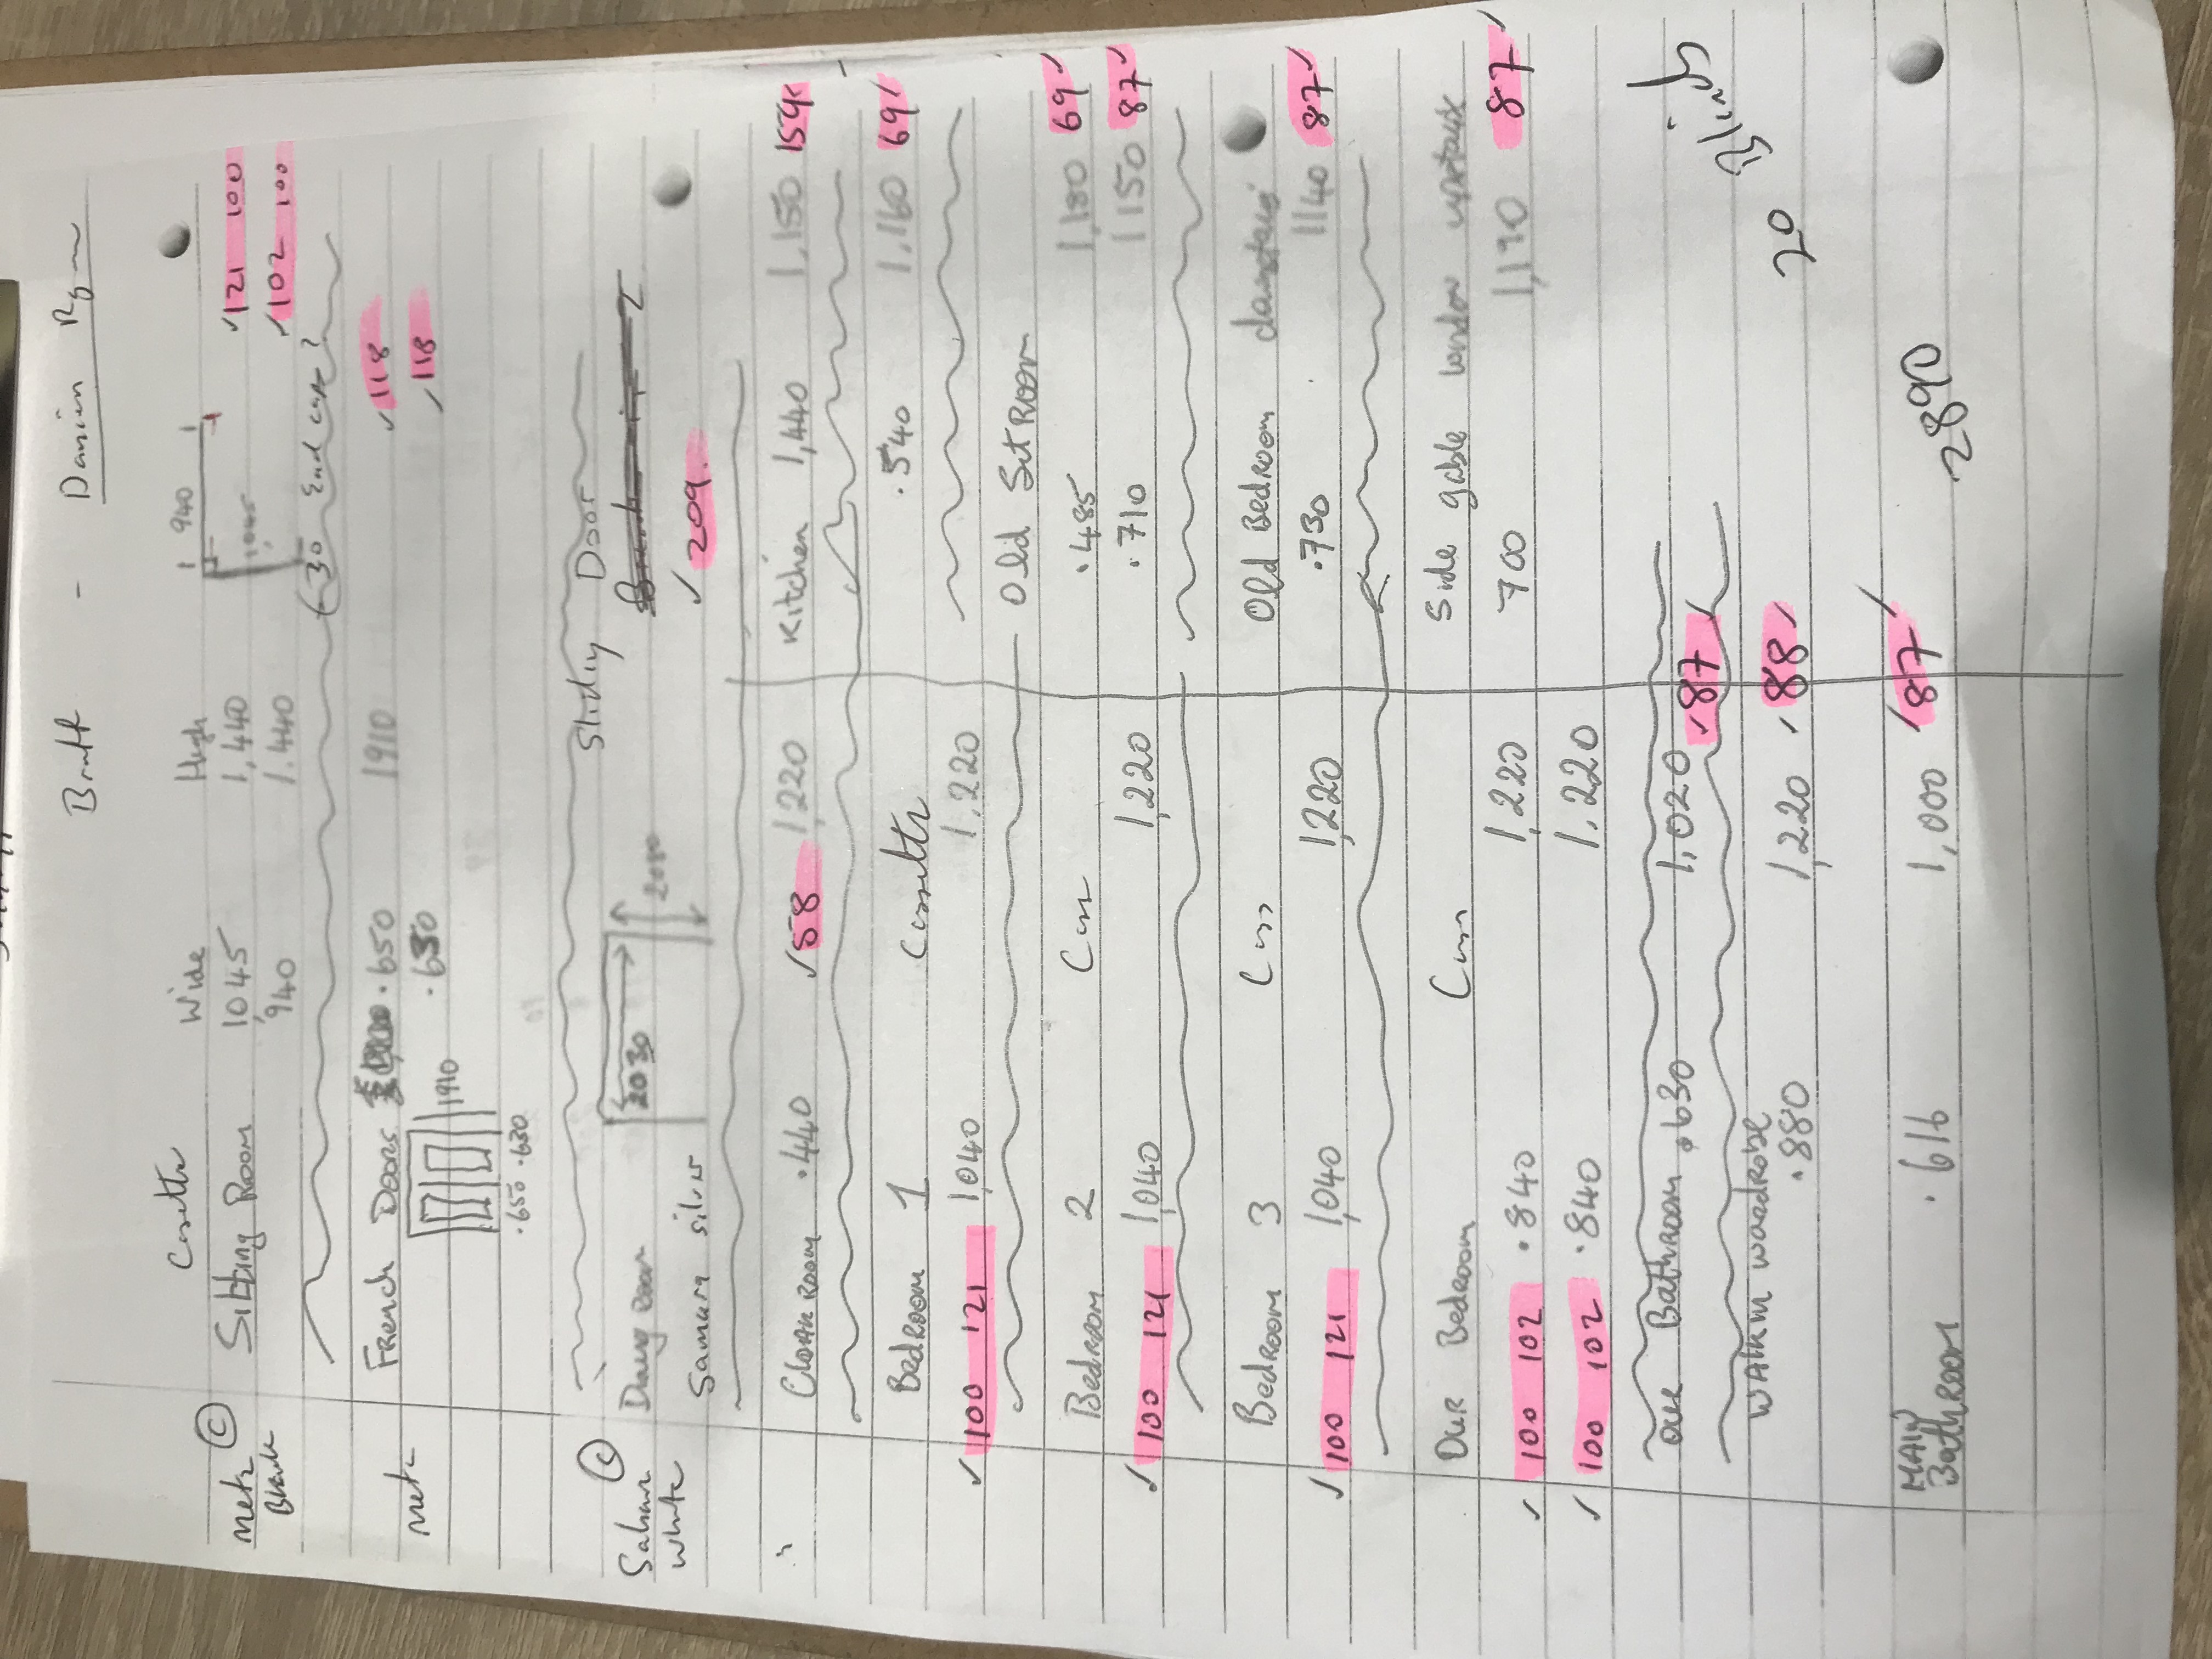 Damien Ryan
Cassette Wide High
metz © Sitting Room 1045 1,440 121 100
Black ,940 1.440 102 100
940
1,045
(30 End caps?
French Doors .650 1910 118
metz .630 118
1910
.650 .630
Sliding Door
© Daing Room 2030
white Samara silver 209
Cloak Room .440 1,220 58 Kitchen 1,440 1,150 159
Bedroom 1 Cassette .540 1,160 69
100 121 1,040 1,220
Old Sit Room
Bedroom 2 Cass .485 1,180 69
100 121 1,040 1,220 .710 1150 87
Bedroom 3 Cass Old Bedroom downstairs
100 121 1,040 1,220 .730 1140 87
Our Bedroom Cass Side gable window upstairs
100 102 .840 1,220 700 1,190 87
100 102 .840 1,220
our Bathroom .630 1,020 87
walkin wardrobe
.880 1,220 88 20 Blinds
MAIN
Bathroom .616 1,000 87 2890